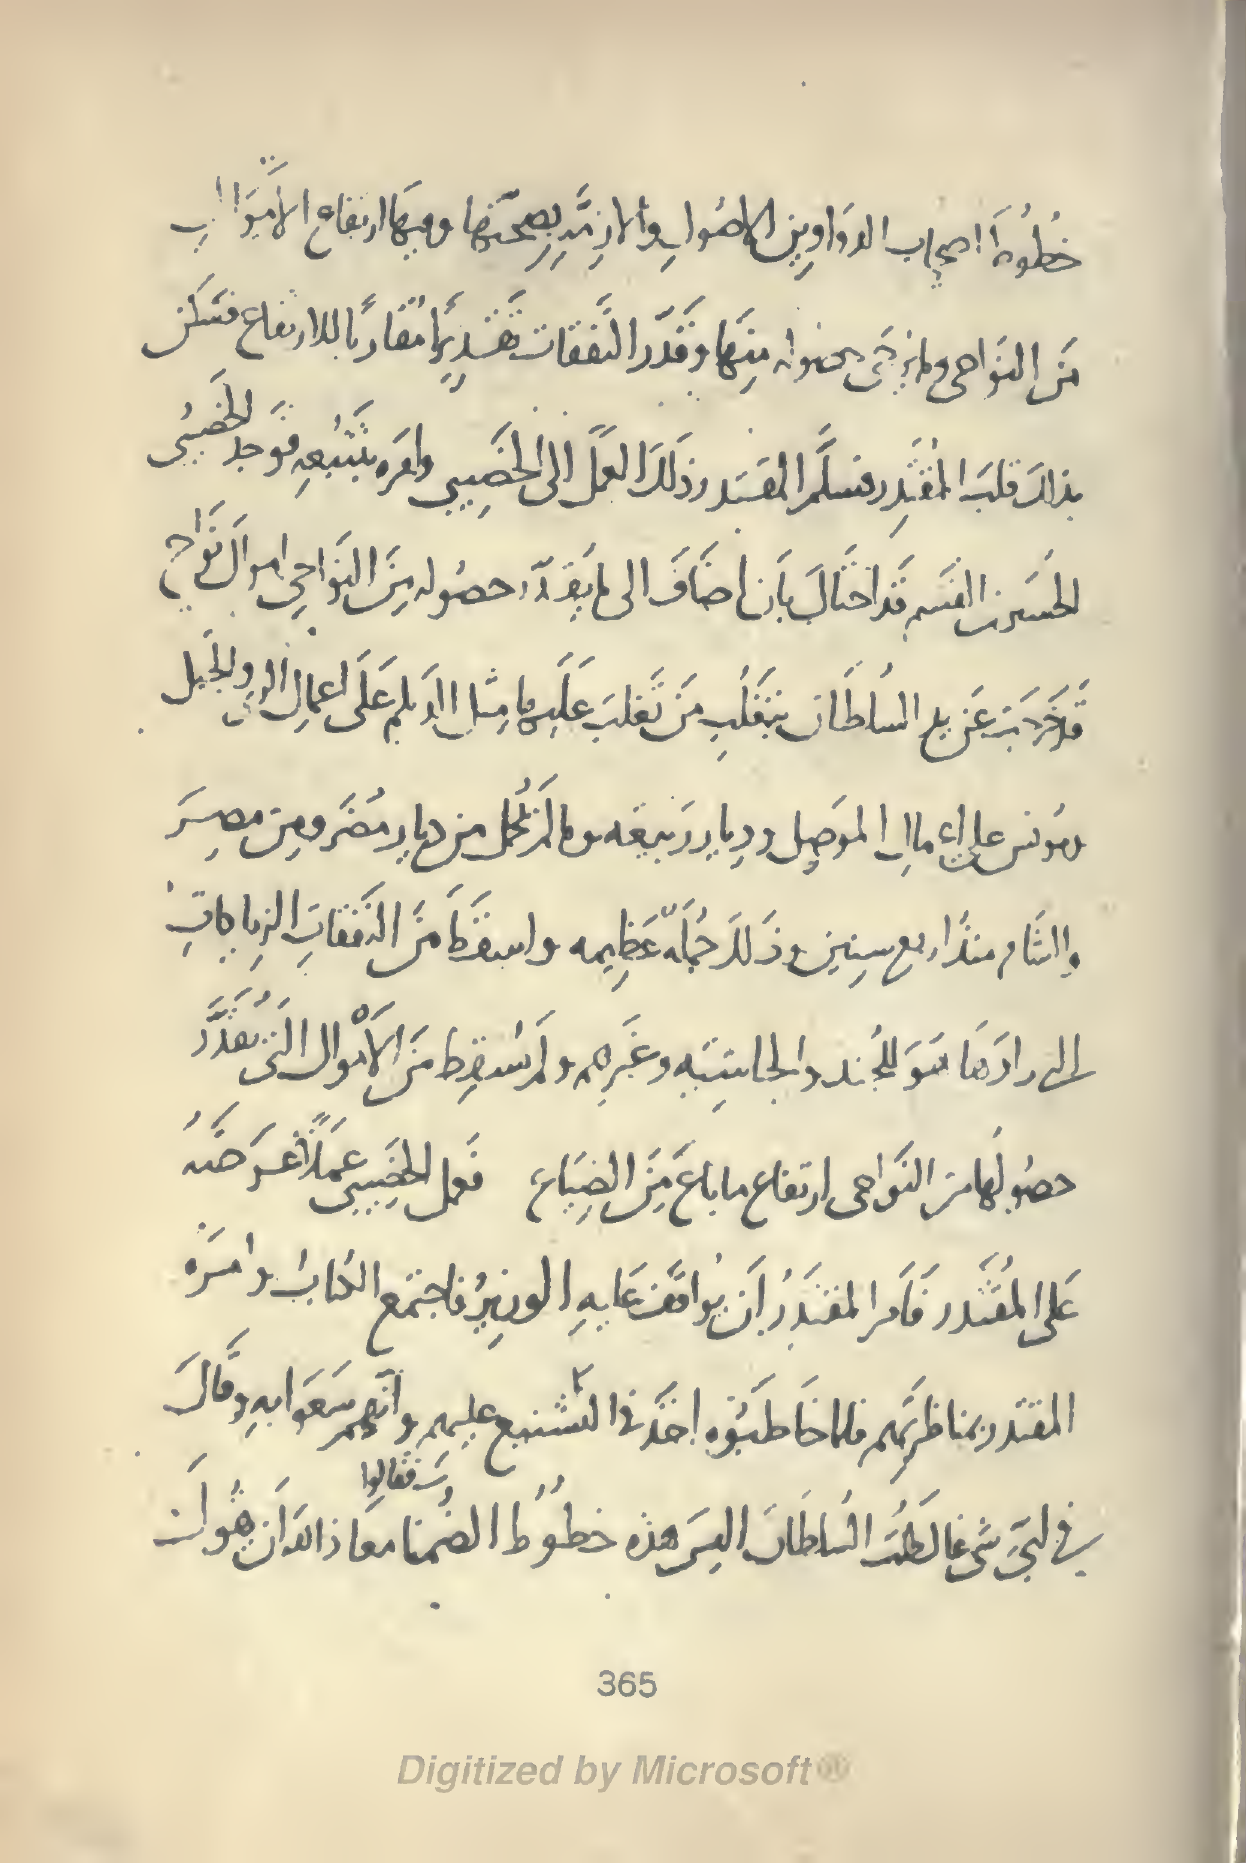 خُطُوطَ اصحاب الدوَاوِينِ الاصُولِ والازمَّةِ بِصِحَّتِها وفيهَا ارتفاع الاَموَال
مَن النوَاحى وما يُرجَى حصوله مِنهَا وقَدّر النَّفقات تَقدِيرًا مُقارِبًا للارتفاع فسَكَن
بذلك قلبَ المُقتَدِر فتسلَّم المقتدر ذلَك العمَلَ الى الخَصِيبى وامَره بتَتبُعِهِ فوَجد الخَصيبُى
الحسَين بن القسم قد احتَالَ بأن اضَافَ الى ما يقدّر حصُوله مِنَ النوَاحِى اموالَ نوَاحٍ
قَد خَرَجَت عَن يد السُلطَان بتغَلُبِ مَن تَغلبَ عَلَيها مِثل الدَيلم عَلَى اعمالِ الرى والجَبل
ومُونس على اعمال الموَصِل ودِيار رَبيعَه وما لم يُحمَل من ديار مُضَر ومِن مِصرَ
والشَام منذ اربع سِنِين وذَلَك جُملَةٌ عَظِيمه واسقَطَ مَنَ النفَقَاتِ الزِياداتِ
التى زادَهَا هُوَ للجُند والحاشِيَه وغَيرِهم ولَم يُسقِط مَن الاَموَال التى يُقَدَّر
حصُولُهَا من النوَاحى ارتفاع ما باعَ مِنَ الضِيَاع فَعمل الخصِيبى عَمَلًا عَرَضَهُ
عَلَى المُقتَدر فَأمَر المقتَدرُ اَن يُوَاقَف عَليهِ الوزِيرُ فاجتمع الكُتابُ وامَرَه
المقتدر بمناظرَتِهم فلما خَاطبُوه اخَذَ فى التشنيع عليهم وانّهم سَعَوا بهِ وقَالَ
فى اىِّ شى غالطتُ السُلطَانَ اليسَ هذه خطُوُط الضُمنا فقالوا معَاذ الله اَن يَقُولَ
365
Digitized by Microsoft®